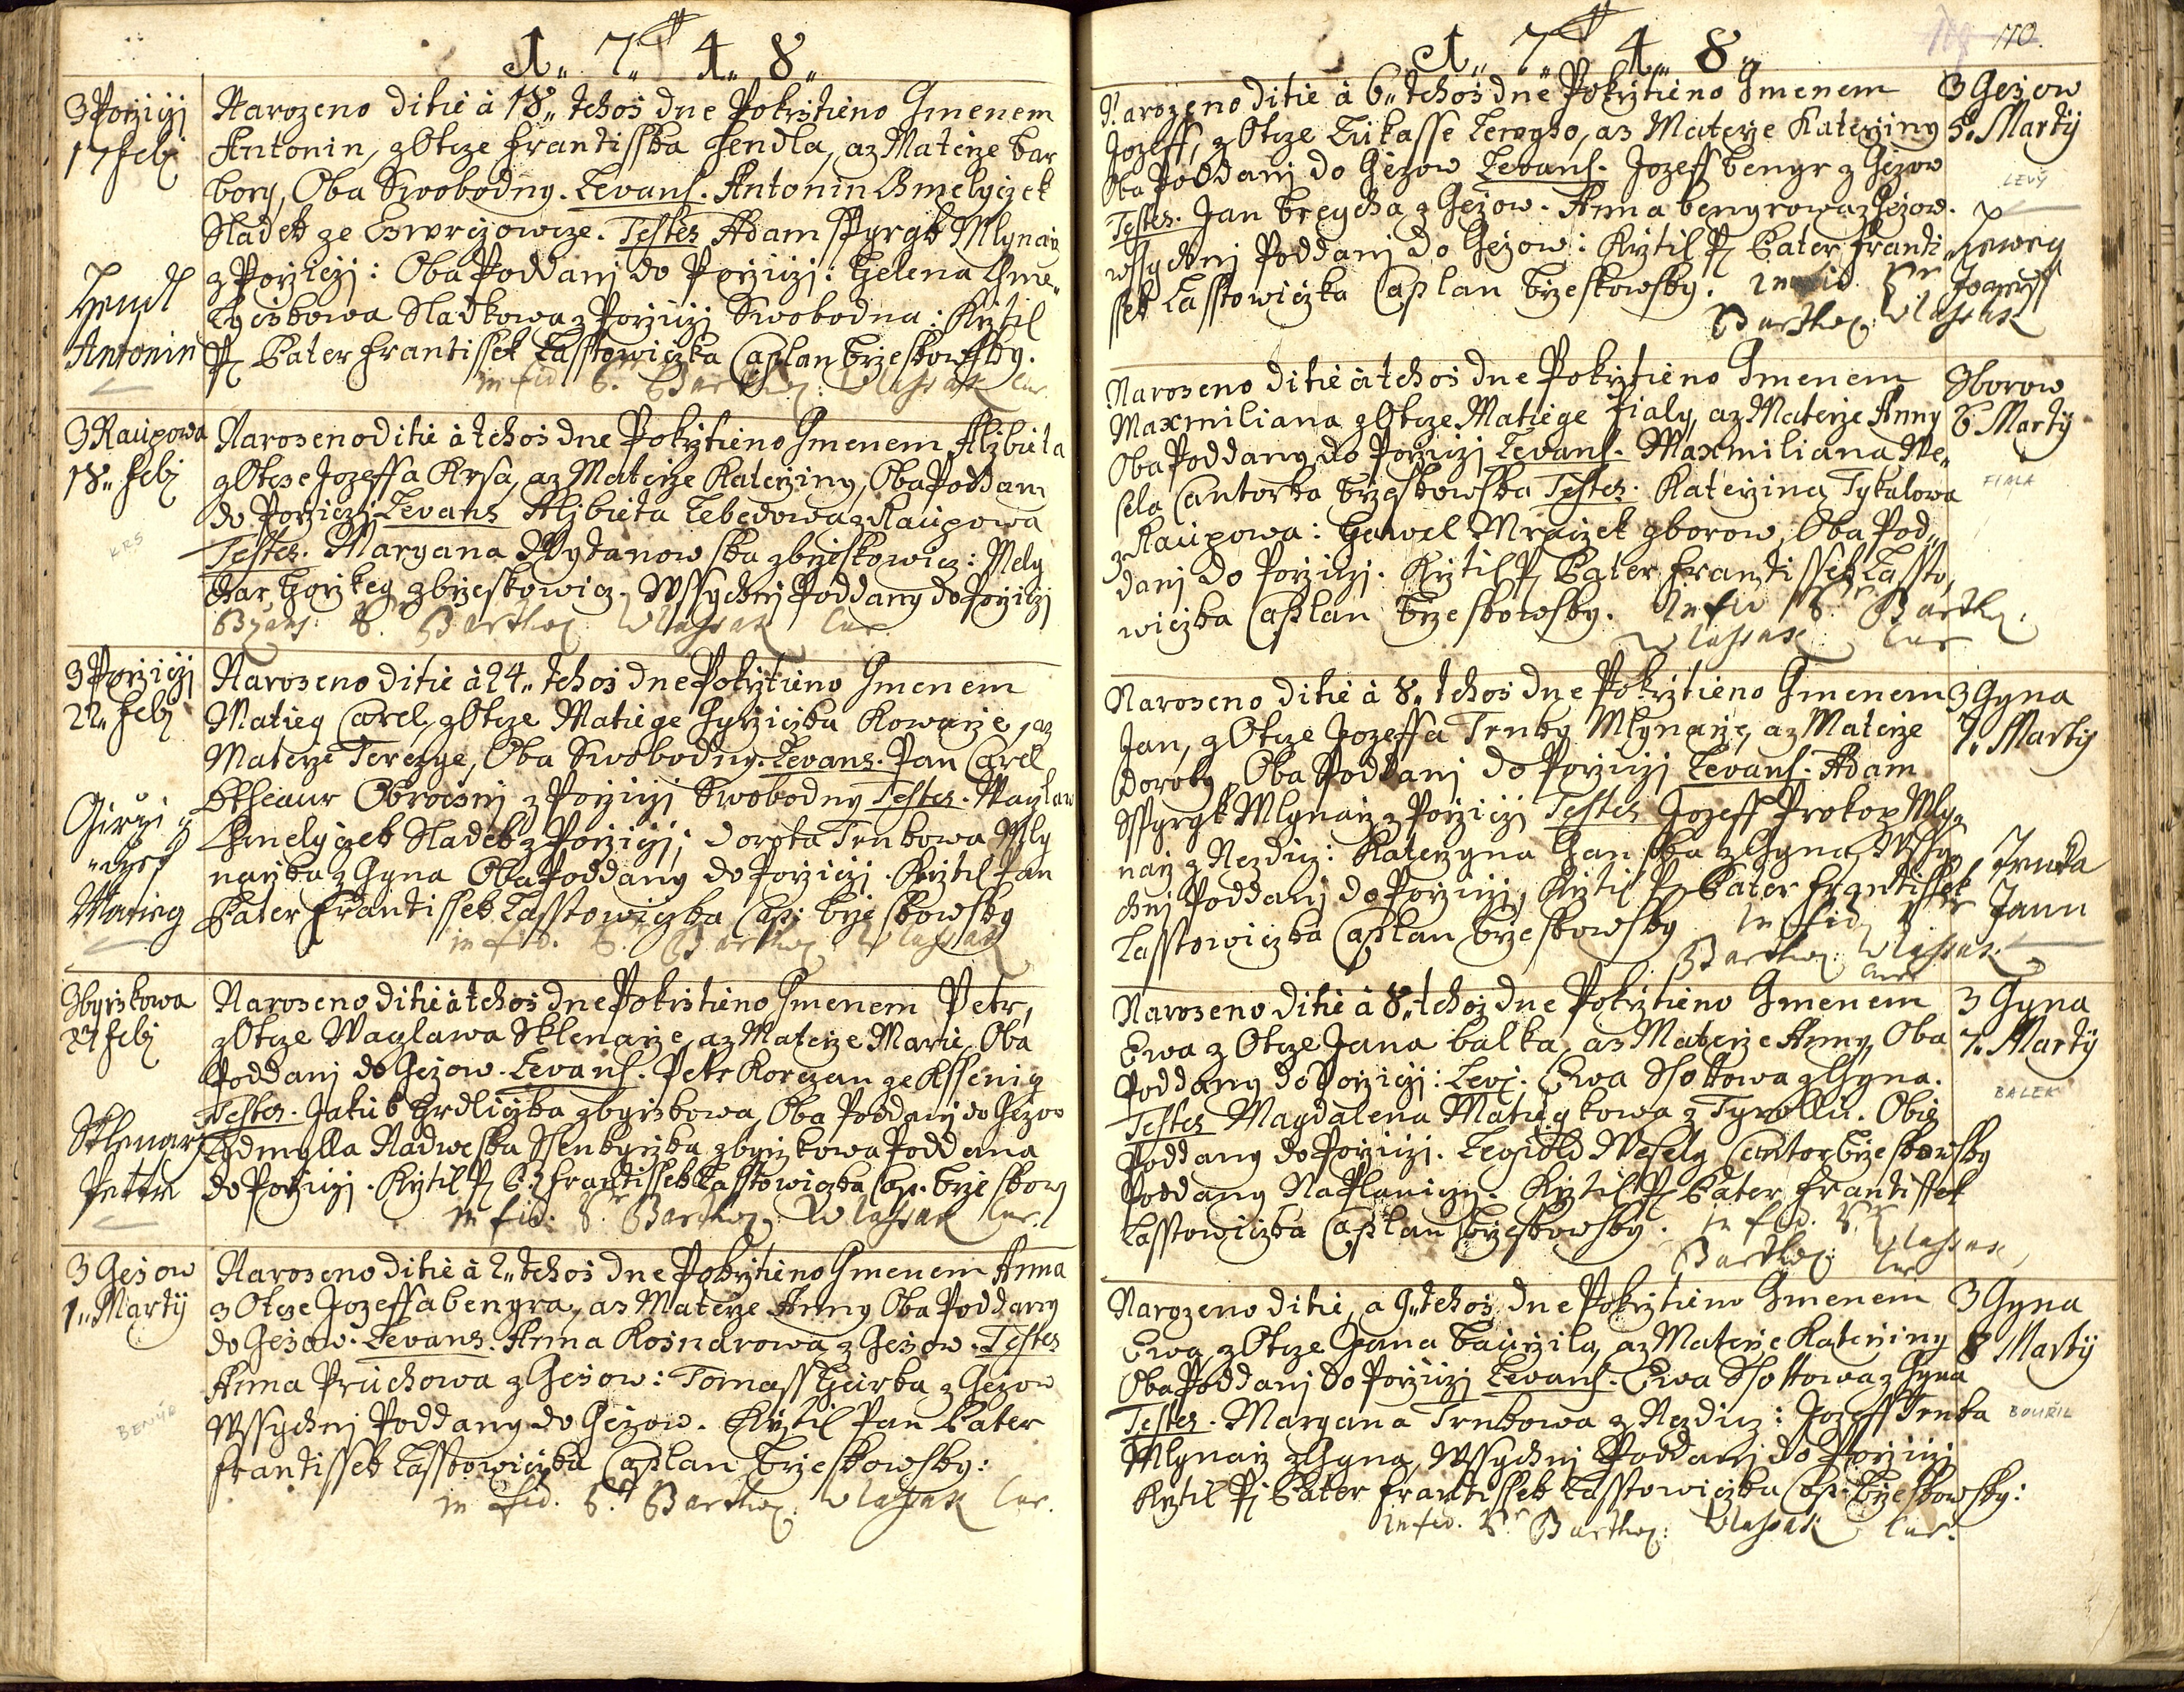 1748
3 Porziczj
17 Febj
Narozeno ditie à 18 tehoż dne Pokrztieno Gmenem
Antonin, z Otcze Frantisska Hendla, a z Materze Bar
bory, Oba Swobodny. Levans. Antonin Chmelyczek
Sladek ze Testes Adam Sspyrgk Mlynarz
z Porziczj: Oba Poddanj do Porziczj: Helena Chme
Sladkowa z Porziczj Swobodna: Krztil
P Pater Frantissek Lasstowiczka Caplan Brzeskowsky.
in fid. Barthol: Wlassak Cur.
Hendl
Antonin
3 Raupowa
18 Febj
KRS
Narozeno ditie à tehoż dne Pokrztieno Gmenem Alzbieta
z Otcze Jozeffa Krsa, a z Materze Katerziny, Oba Poddani
do Porziczj Levans Alzbieta Lebedowa z Raupowa
Testes. Maryana z Brzeskowicz: Mely
char z Brzeskowicz. Wssychnj Poddany do Porziczj
Barthol Wlassak Cur.
3 Porziczj
22 Febj
Narozeno ditie à 24 tehoż dne Pokrztieno Gmenem
Matieg Carel, z Otcze Matiege Gyrziczka Kowarze, a z
Materze Terezye, Oba Swobodny. Levans. Pan Carel
Obroczni z Porziczj Swobodny Testes. Waczlaw
Chmelyczek Sladek z Porziczj; Dorota Trnkowa Mly
narzka z Gyna Oba Poddany do Porziczj. Krztil Pan
Pater Frantissek Lasstowiczka Cap: Brzeskowsky
in fid. Barthol Wlassak
Matieg
Zbyrskowa
27 Febj
Narozeno ditie à tehoż dne Pokrztieno Gmenem Petr,
z Otcze Waczlawa Sklenarze, a z Materze Marie, Oba
Poddanj do Gezow. Levans. Petr Korczan ze Kssenig
Testes. Jakub Hrdliczka z Oba Poddanj do Gezow
Lydmylla Poddana
do Porziczj. Krztil P. P. Frantissek Lasstowiczka Cap. Brzeskow
in fid: Barthol Wlassak Cur.
Sklenarz
Pettr
3 Gezow
1 Martij
BENÝR
Narozeno ditie à 2 tehoż dne Pokrztieno Gmenem Anna
z Otcze Jozeffa Bengra, a z Materze Anny Oba Poddany
do Gezow. Levans. Anna Kosnarowa z Gezow. Testes
Anna Pruchowa z Gezow: Tomass z Gezow
Wssychnj Poddany do Gezow. Krztil Pan Pater
Frantissek Lasstowiczka Caplan Brzeskowsky:
in fid. Barthol: Wlassak Cur.
1748
110.
Narozeno ditie à 6 tehoż dne Pokrztieno Gmenem
Jozeff, z Otcze Lukasse Leweho, a z Materze Katerziny
Oba Poddanj do Gezow Levans. Jozeff Bengr z Gezow
Testes. Jan z Gezow. Anna Bengrowa z Gezow.
Wssychnj Poddanj do Gezow: Krztil P Pater Franti
ssek Lasstowiczka Caplan Brzeskowsky.
Barthol: Wlassak
3 Gezow
5. Martij
LEVÝ
Narozeno ditie à tehoż dne Pokrztieno Gmenem
Maxmiliana z Otcze Matiege Fialy, a z Materze Anny
Oba Poddany do Porziczj Levans. Maxmiliana We
sela Cantorka Brzeskowska Testes. Katerzina Tykalowa
z Raupowa: Hawel Mraczek z Borow, Oba Pod
danj do Porziczj. Krztil P Pater Frantissek Lassto
wiczka Caplan Brzeskowsky. In fid Barthol.
Wlassak Cur
Zborow
6 Martij
FIALA
Narozeno ditie à 8 tehoż dne Pokrztieno Gmenem
Jan, z Otcze Jozeffa Trnky Mlynarze, a z Materze
Doroty, Oba Poddanj do Porziczj Levans. Adam
Sspyrgk Mlynarz z Porziczj Testes Jozeff Prokop Mly
narz z Nezdicz: Katerzyna z Gyna, Wssy
chnj Poddanj do Porziczj, Krztil P Pater Frantissek
Lasstowiczka Caplan Brzeskowsky in fid
Barthol: Wlassak
Cur
3 Gyna
7. Martij
Trnka
Jann
Narozeno ditie à 8 tehoż dne Pokrztieno Gmenem
Ewa z Otcze Jana Balka, a z Materze Anny, Oba
Poddany do Porziczj: Lev. Ewa z Gyna.
Testes Magdalena Matiegkowa z Tyrollu. Obie
Poddany do Porziczj. Leopold Wesely Cantor Brzeskowsky
Poddany Na Planiczy. Krztil P Pater Frantissek
Lasstowiczka Caplan Brzeskowsky. in fid.
Barthol: Wlassak,
Cur
3 Gyna
7. Martij
BALEK
Narozeno ditie, a 9 tehoż dne Pokrztieno Gmenem
Ewa, z Otcze Jana Baurzila, a z Materze Katerziny
Oba Poddanj do Porziczj Levans. Ewa z Gyna
Testes. Maryana Trnkowa z Nezdicz: Jozeff Trnka
Mlynarz z Gyna, Wssychnj Poddanj do Porziczj
Krztil P Pater Frantissek Lasstowiczka Cap: Brzeskowsky:
in fid. Barthol: Wlassak Cur.
3 Gyna
8 Martij
BOUŘIL